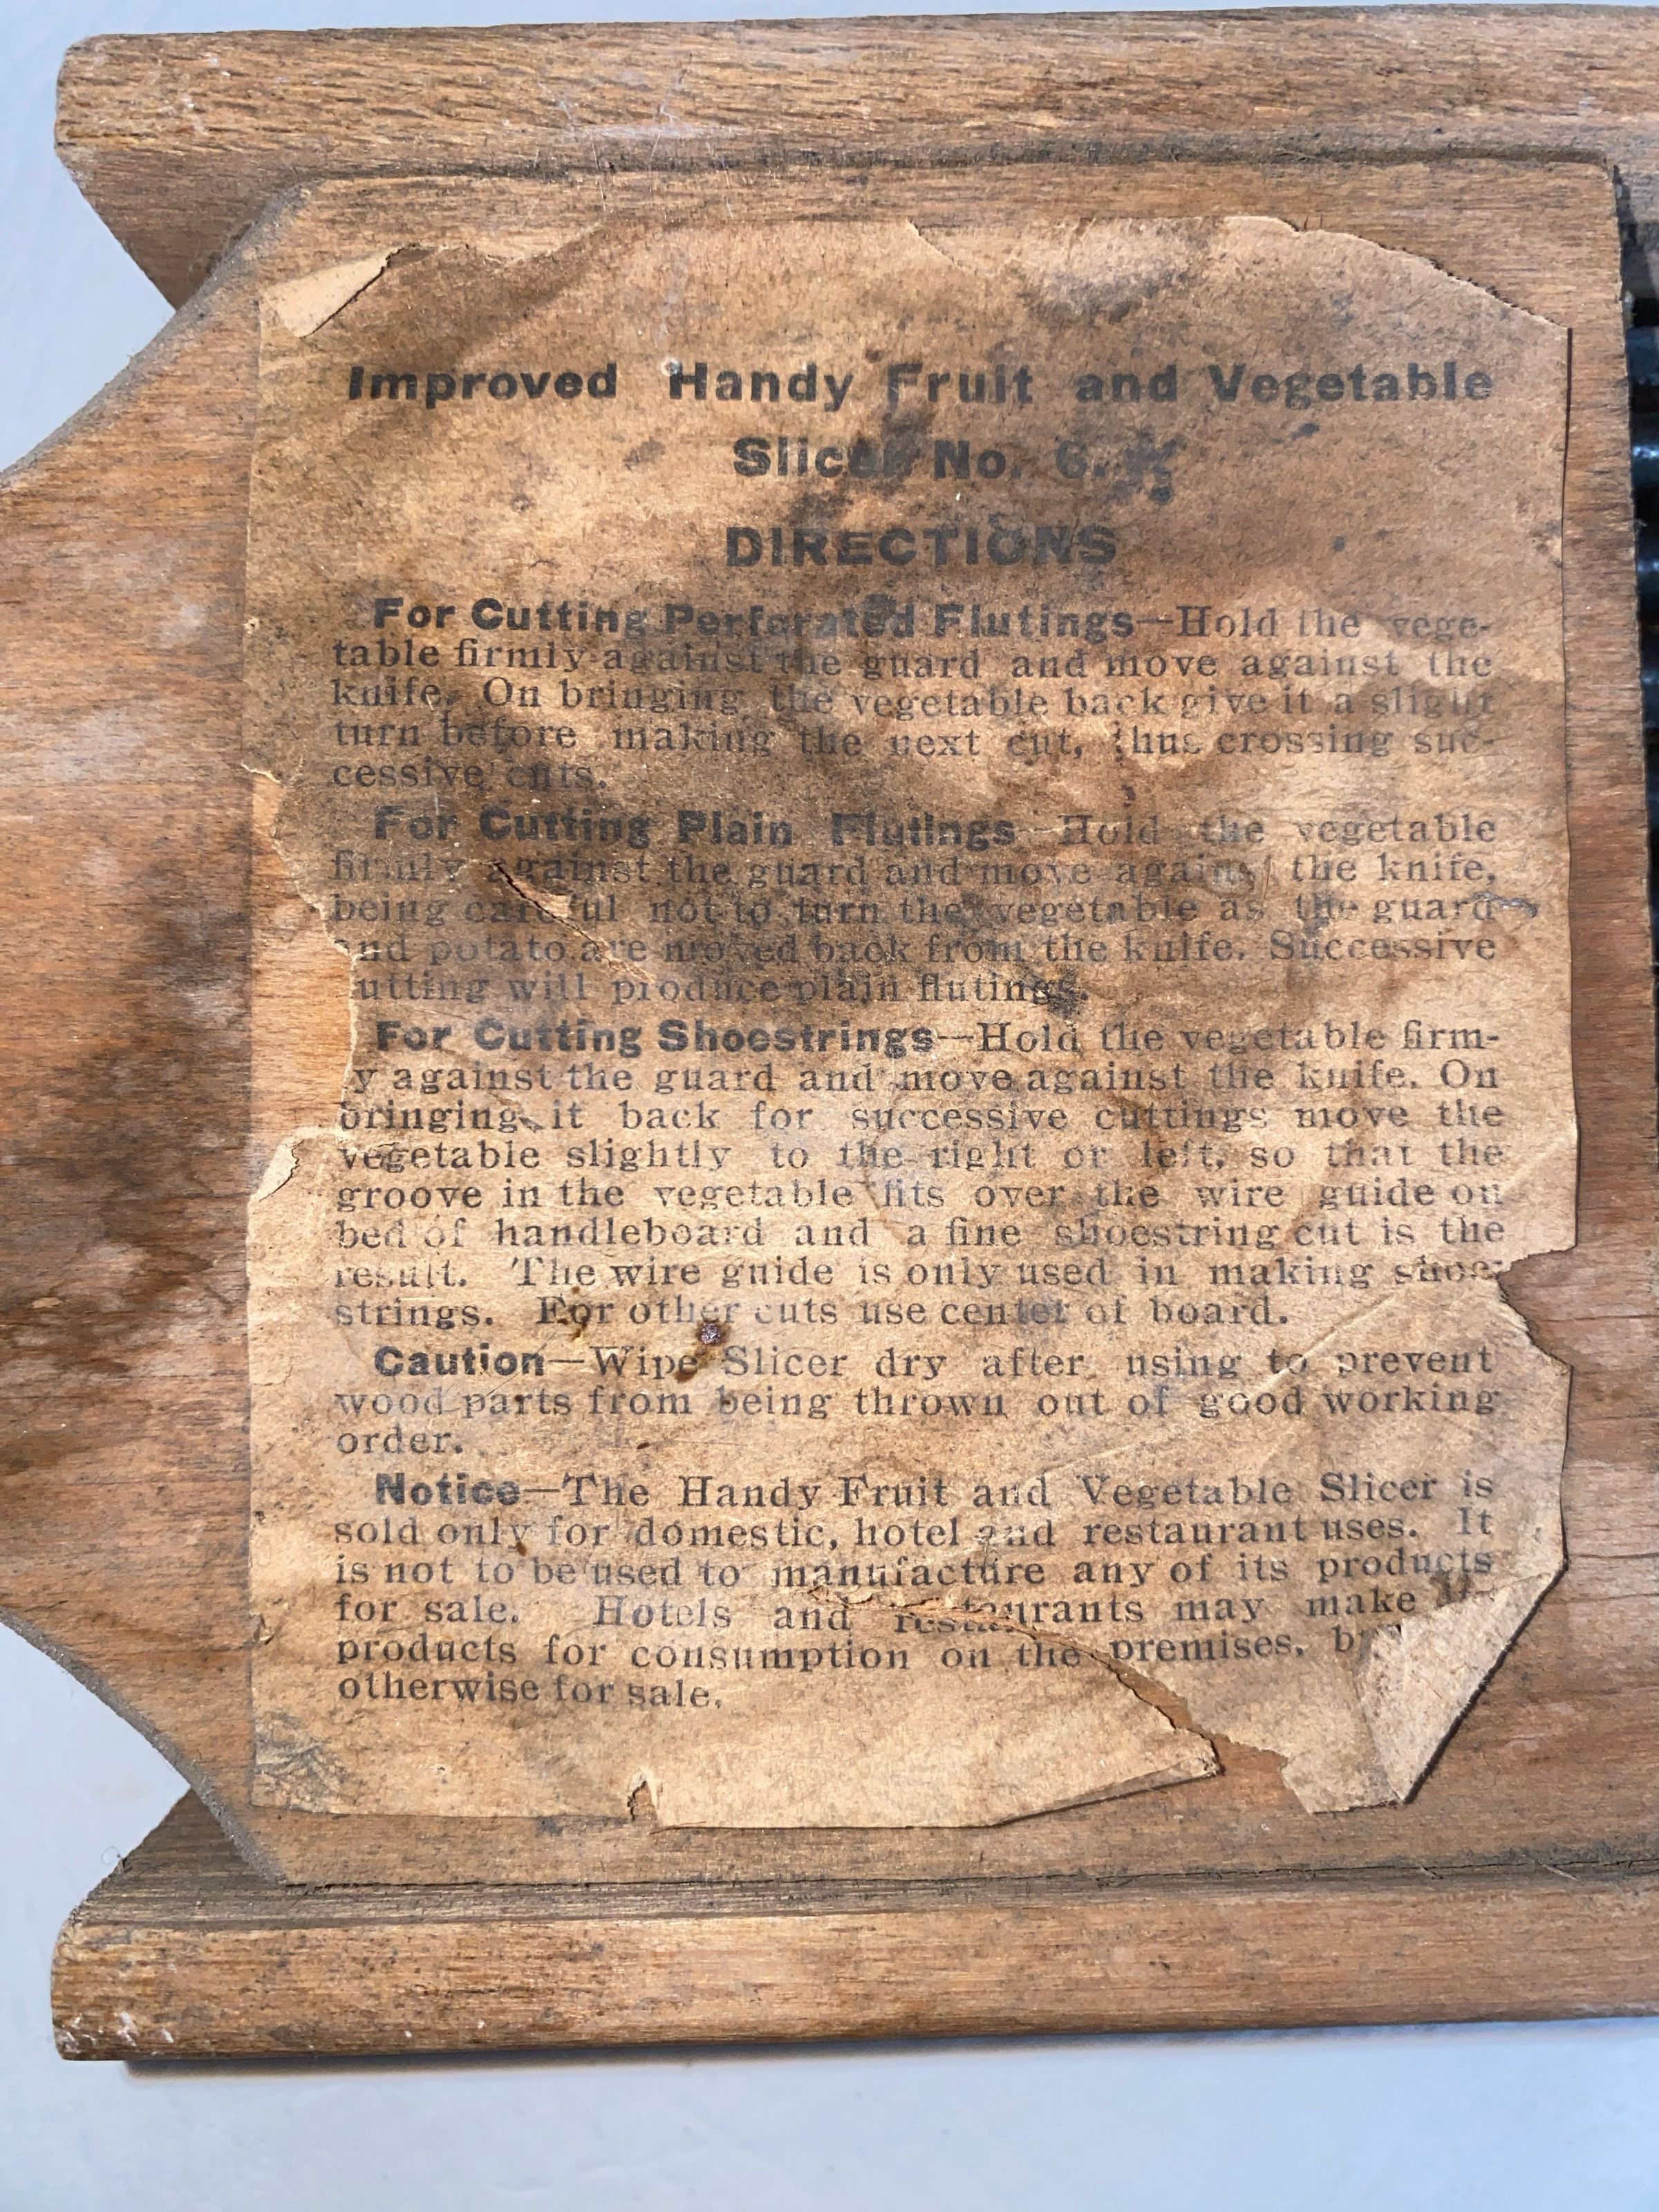 Improved Handy Fruit and Vegetable
Slicer No. 6.
DIRECTIONS
For Cutting Perforated Flutings—Hold the vege-
table firmly against the guard and move against the
knife. On bringing the vegetable back give it a slight
turn before making the next cut, thus crossing suc-
cessive cuts.
For Cutting Plain Flutings—Hold the vegetable
firmly against the guard and move against the knife,
being careful not to turn the vegetable as the guard
and potato are moved back from the knife. Successive
utting will produce plain flutings.
For Cutting Shoestrings—Hold the vegetable firm-
y against the guard and move against the knife. On
bringing it back for successive cuttings move the
vegetable slightly to the right or left, so that the
groove in the vegetable fits over the wire guide on
bed of handleboard and a fine shoestring cut is the
result. The wire guide is only used in making shoe-
strings. For other cuts use center of board.
Caution—Wipe Slicer dry after using to prevent
wood parts from being thrown out of good working
order.
Notice—The Handy Fruit and Vegetable Slicer is
sold only for domestic, hotel and restaurant uses. It
is not to be used to manufacture any of its products
for sale. Hotels and restaurants may make
products for consumption on the premises,
otherwise for sale.